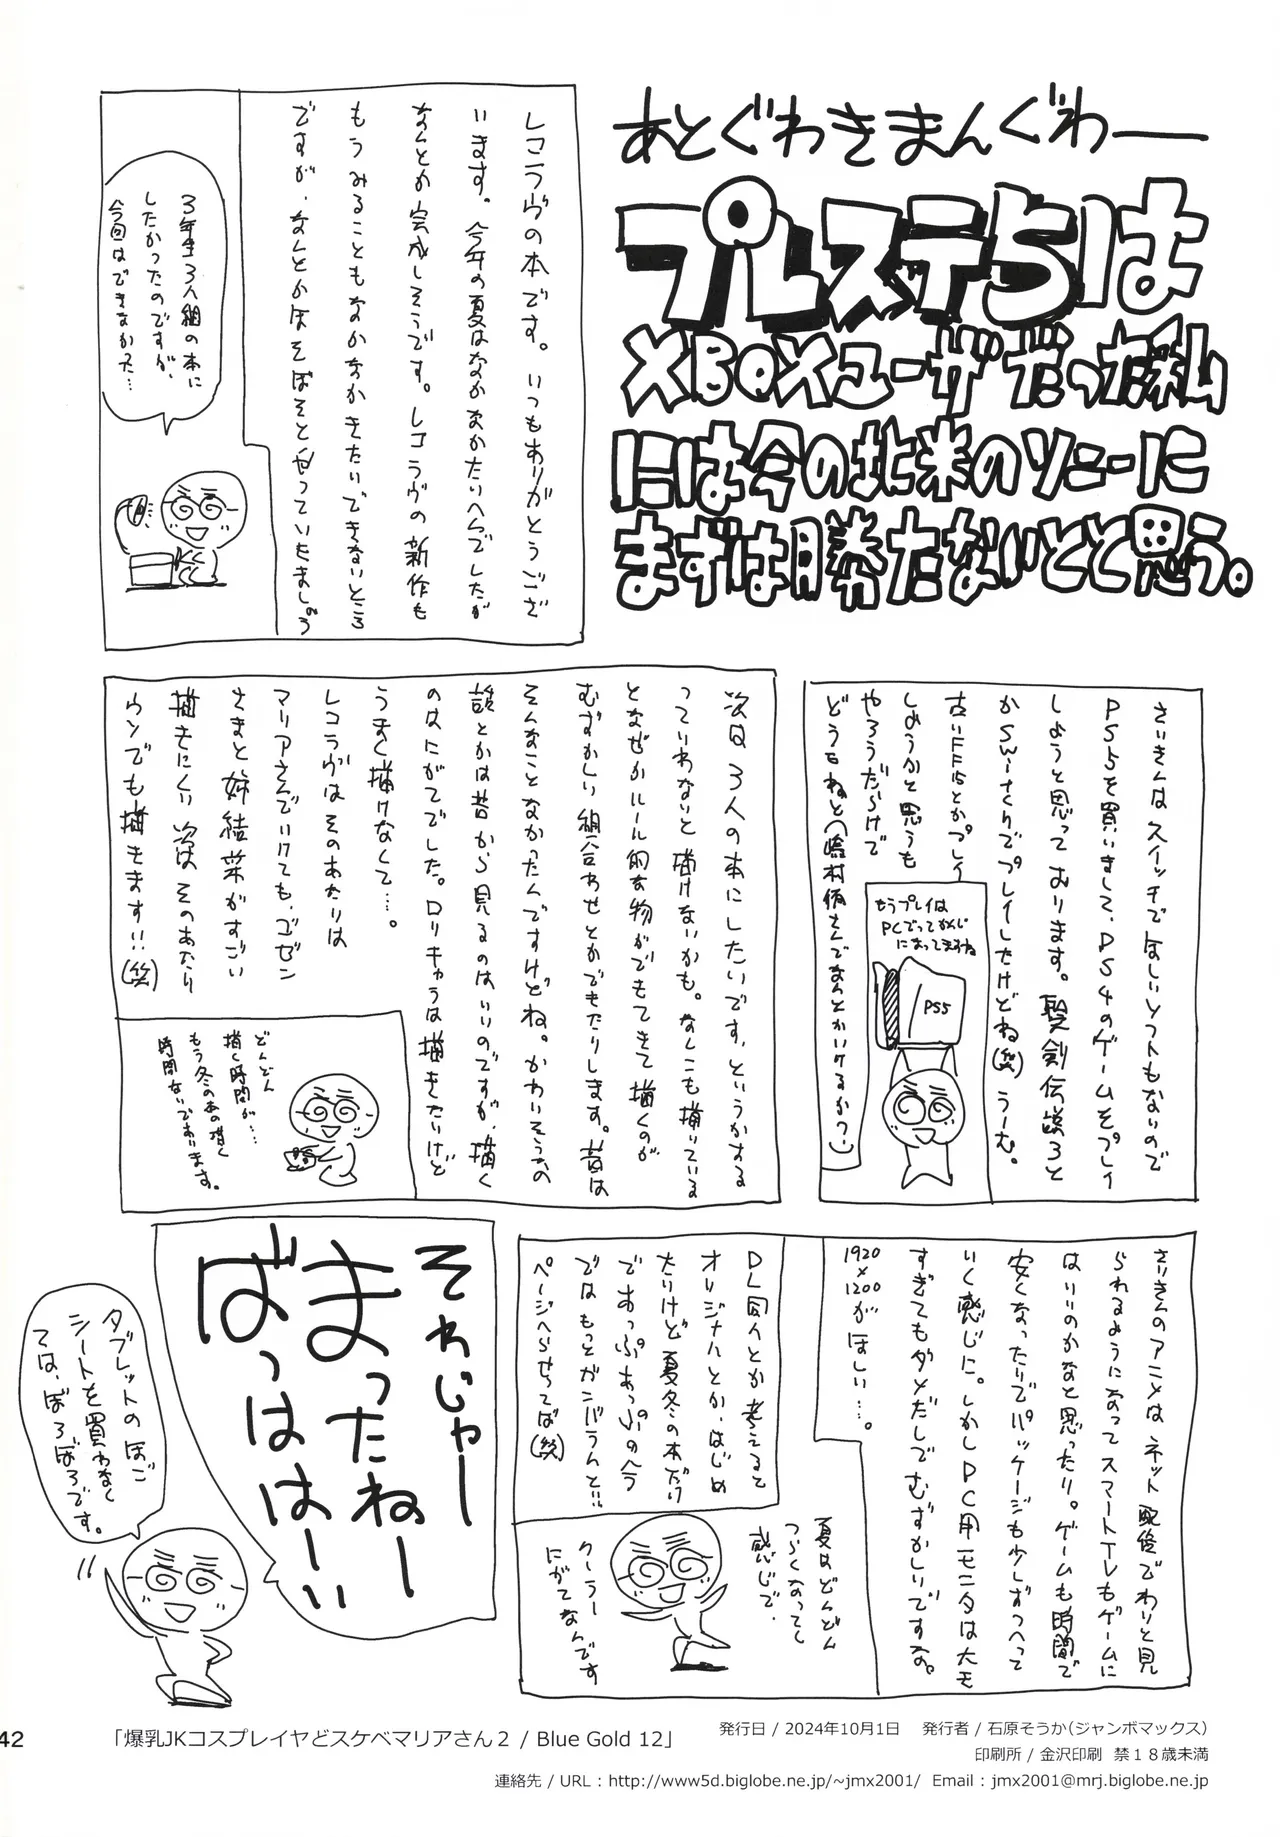 あとぐわきまんぐわー
プレステ5は
XBOXユーザだった私
には今の北米のソニーに
まずは勝たないとと思う。
レコラヴの本です。いつもありがとうござ
います。今年の夏はなかなかたいへんでしたが
なんとか完成しそうです。レコラヴの新作も
もうみることもなかなかきたいできないところ
ですが、なんとかほそぼそとやっていたましょう
3年生3人組の本に
したかったのですが、
今回はできなかった…
さいきんはスイッチでほしいソフトもないので
PS5を買いまして、PS4のゲームをプレイ
しようと思っております。聖剣伝説3と
かSwitchでプレイしたけどね(笑)うーむ。
古いFF15とかプレイ
しようかと思うも
やろうだらけで
どうもねと
もうプレイは
PCでってかんじ
になってますね
PS5
次は3人の本にしたいです、というかする
っていわないと描けないかも。なんこも描いている
となぜかルール的な物がでてきて描くのが
むずかしい組合わせとかできたりします。昔は
そんなことなかったんですけどね。かわいそうなの
談とかは昔から見るのはいいのですが、描く
のはにがてでした。ロリキャラは描きたいけど
うまく描けなくて…。
レコラヴはそのあたりは
マリアさんでいけても、ゴゼン
さまと姉結菜がすごい
描きにくい 次はそのあたり
ウンでも描きます!!(笑)
どんどん
描く時間が…
もう冬のあの描く
時間ないであります。
さいきんのアニメはネット配信でわりと見
られるようになってスマートTVもゲームに
はいいのかなと思ったり。ゲームも時間で
安くなったりでパッケージも少しずつへって
いく感じに。しかしPC用モニタは大モ
すぎてもダメだしでむずかしいですな。
1920×1200がほしい…。
DL同人とか考えると
オリジナルとか、はじめ
たいけど夏冬の本だけ
であっぷあっぷのヘラ
ではもっとガンバランと…
ページへらせってば(笑)
夏はどんどん
つらくなってく
感じで、
クーラー
にがてなんです
それじゃー
まったねー
ばっははーい
タブレットのほご
シートを買わなく
ては、ぼろぼろです。
42
「爆乳JKコスプレイヤどスケベマリアさん2 / Blue Gold 12」
発行日 / 2024年10月1日　発行者 / 石原そうか(ジャンボマックス)
印刷所 / 金沢印刷　禁18歳未満
連絡先 / URL : http://www5d.biglobe.ne.jp/~jmx2001/　Email : jmx2001@mrj.biglobe.ne.jp